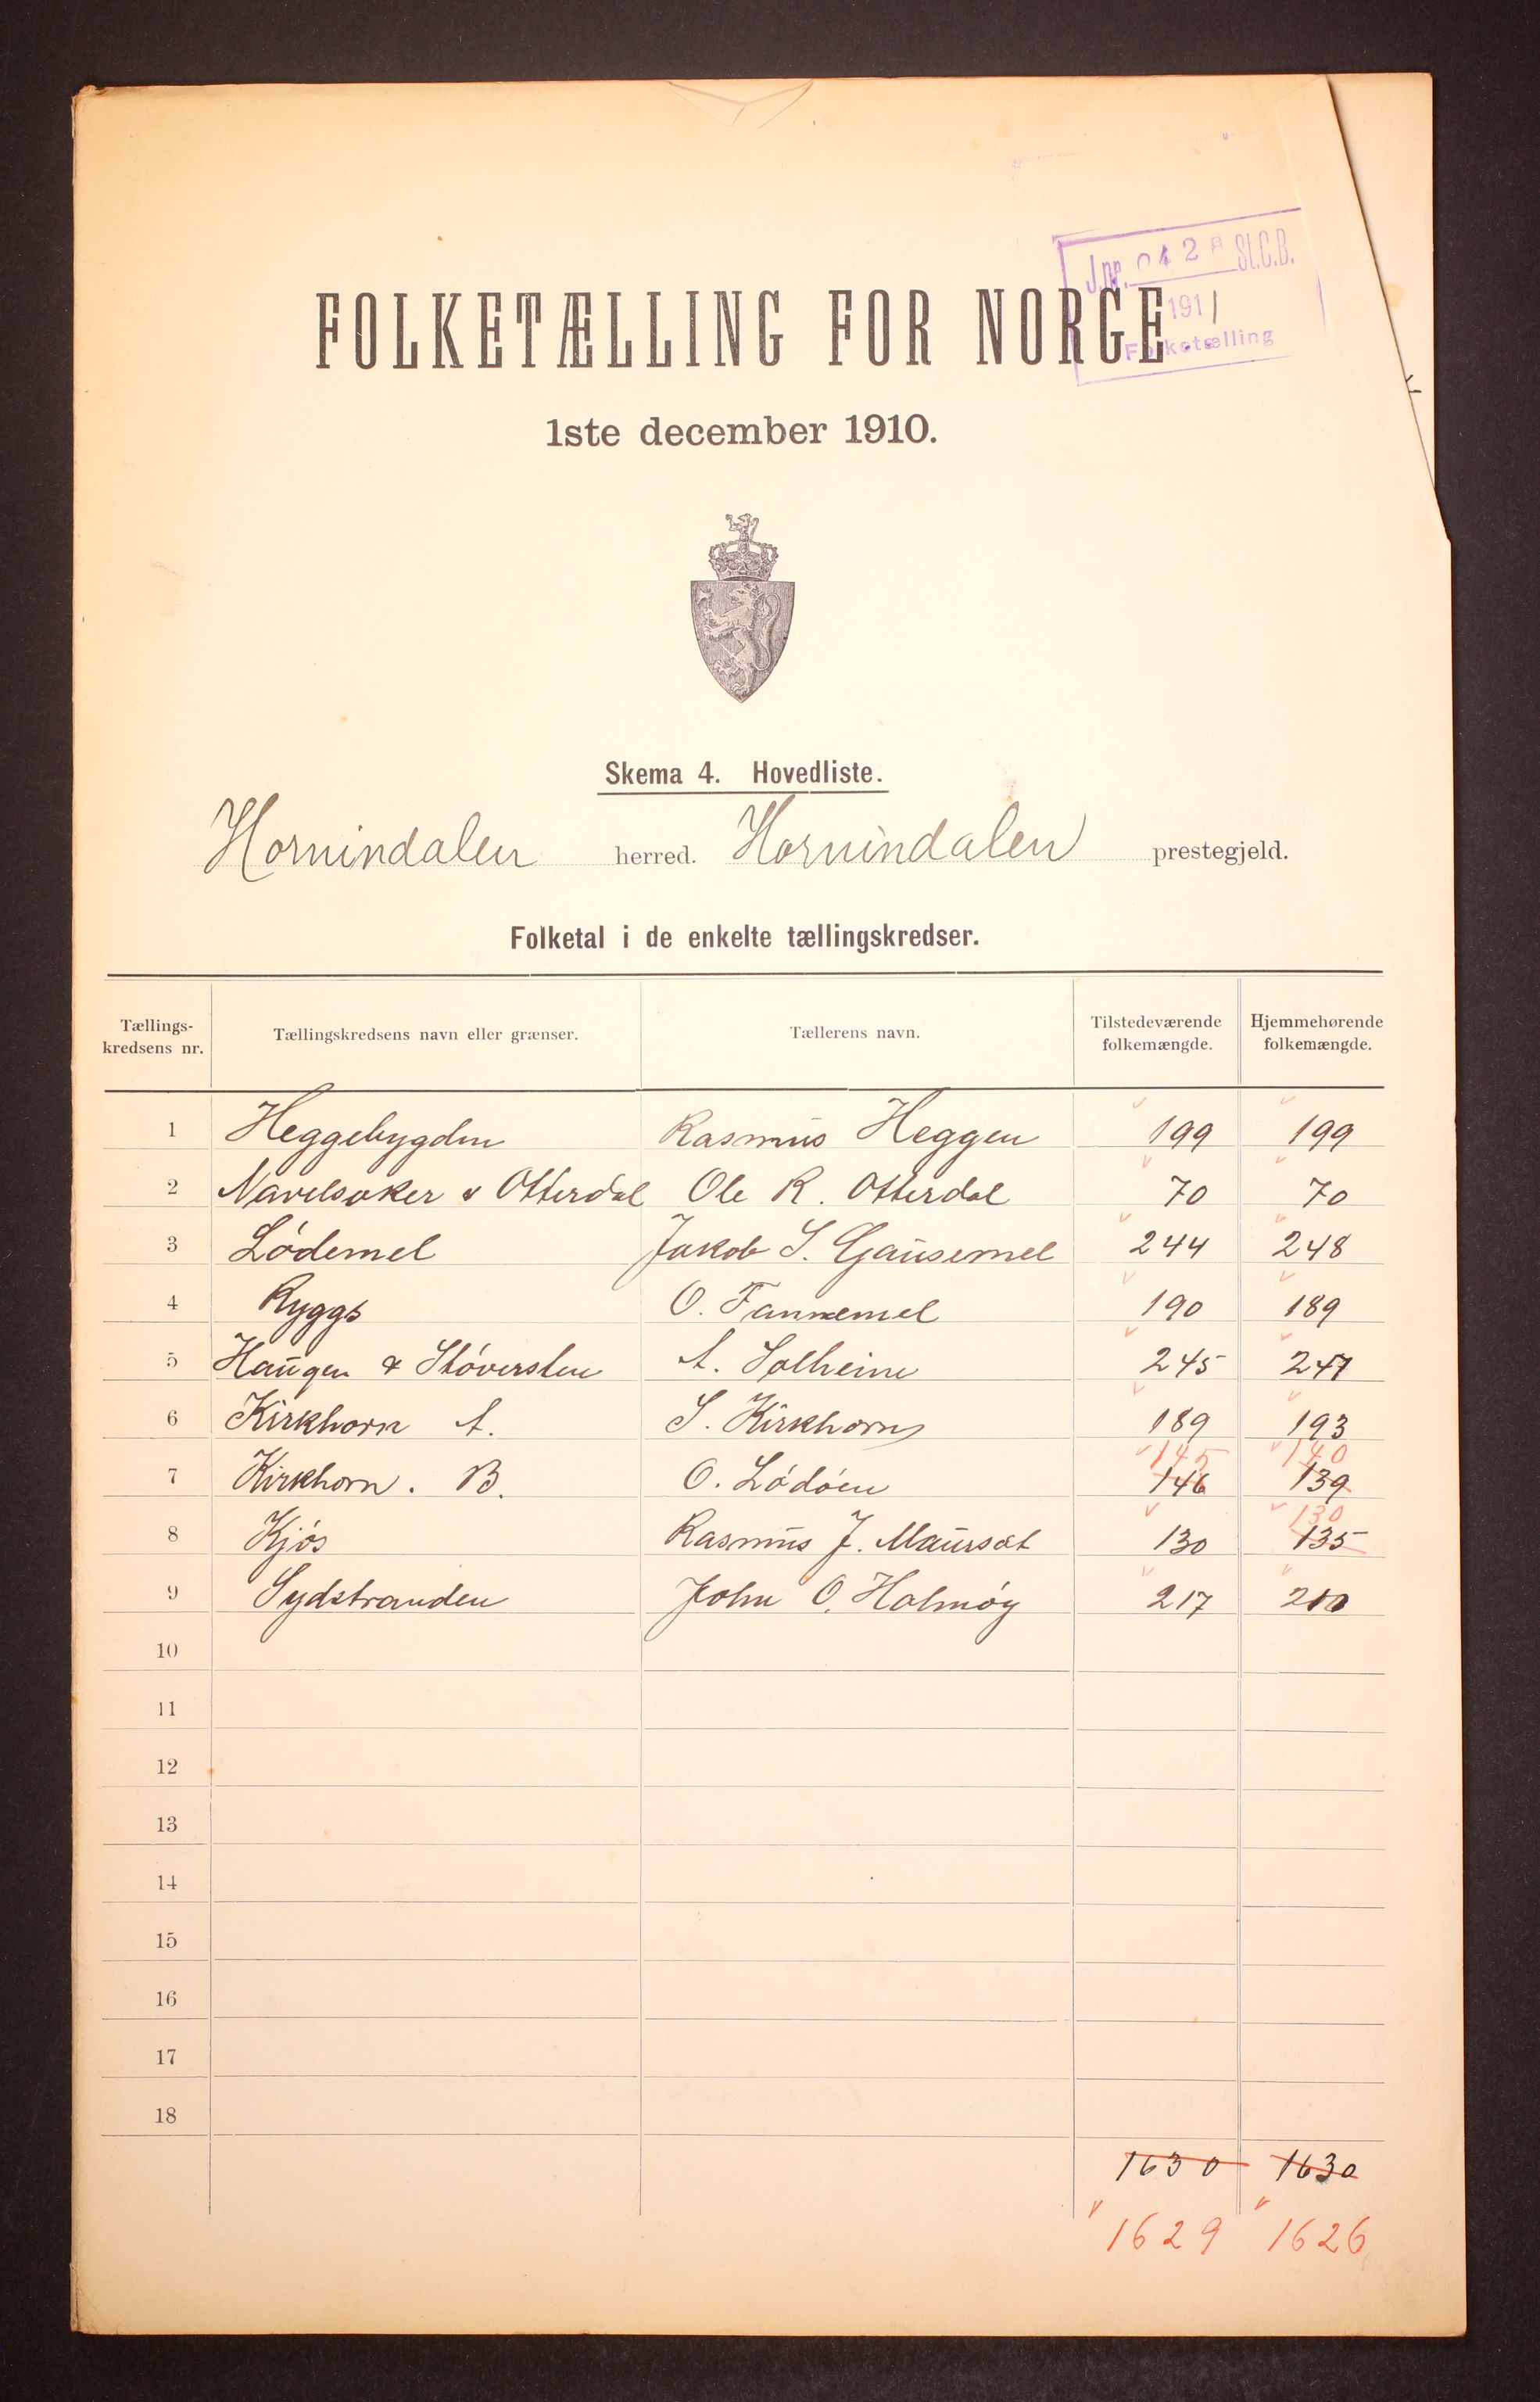 J.nr. 0428 St.C.B.
1911
Folketælling
FOLKETÆLLING FOR NORGE
1ste december 1910.
Skema 4. Hovedliste.
Hornindalen herred. Hornindalen prestegjeld.
Folketal i de enkelte tællingskredser.
Tællings-kredsens nr. Tællingskredsens navn eller grænser. Tællerens navn. Tilstedeværende folkemængde. Hjemmehørende folkemængde.
1 Heggebygden Rasmus Heggen 199 199
2 Navelsaker & Otterdal Ole R. Otterdal 70 70
3 Lødemel Jakob S. Gausemel 244 248
4 Ryggs O. Tannemel 190 189
5 Haugen & Støversten A. Solheim 245 247
6 Kirkhorn A. S. Kirkhorn 189 193
145 140
7 Kirkhorn. B. O. Lødøen 146 139
130
8 Kjøs Rasmus J. Maursæt 130 135
9 Sydstranden John O. Holmøy 217 210
10
11
12
13
14
15
16
17
18
1630 1630
1629 1626